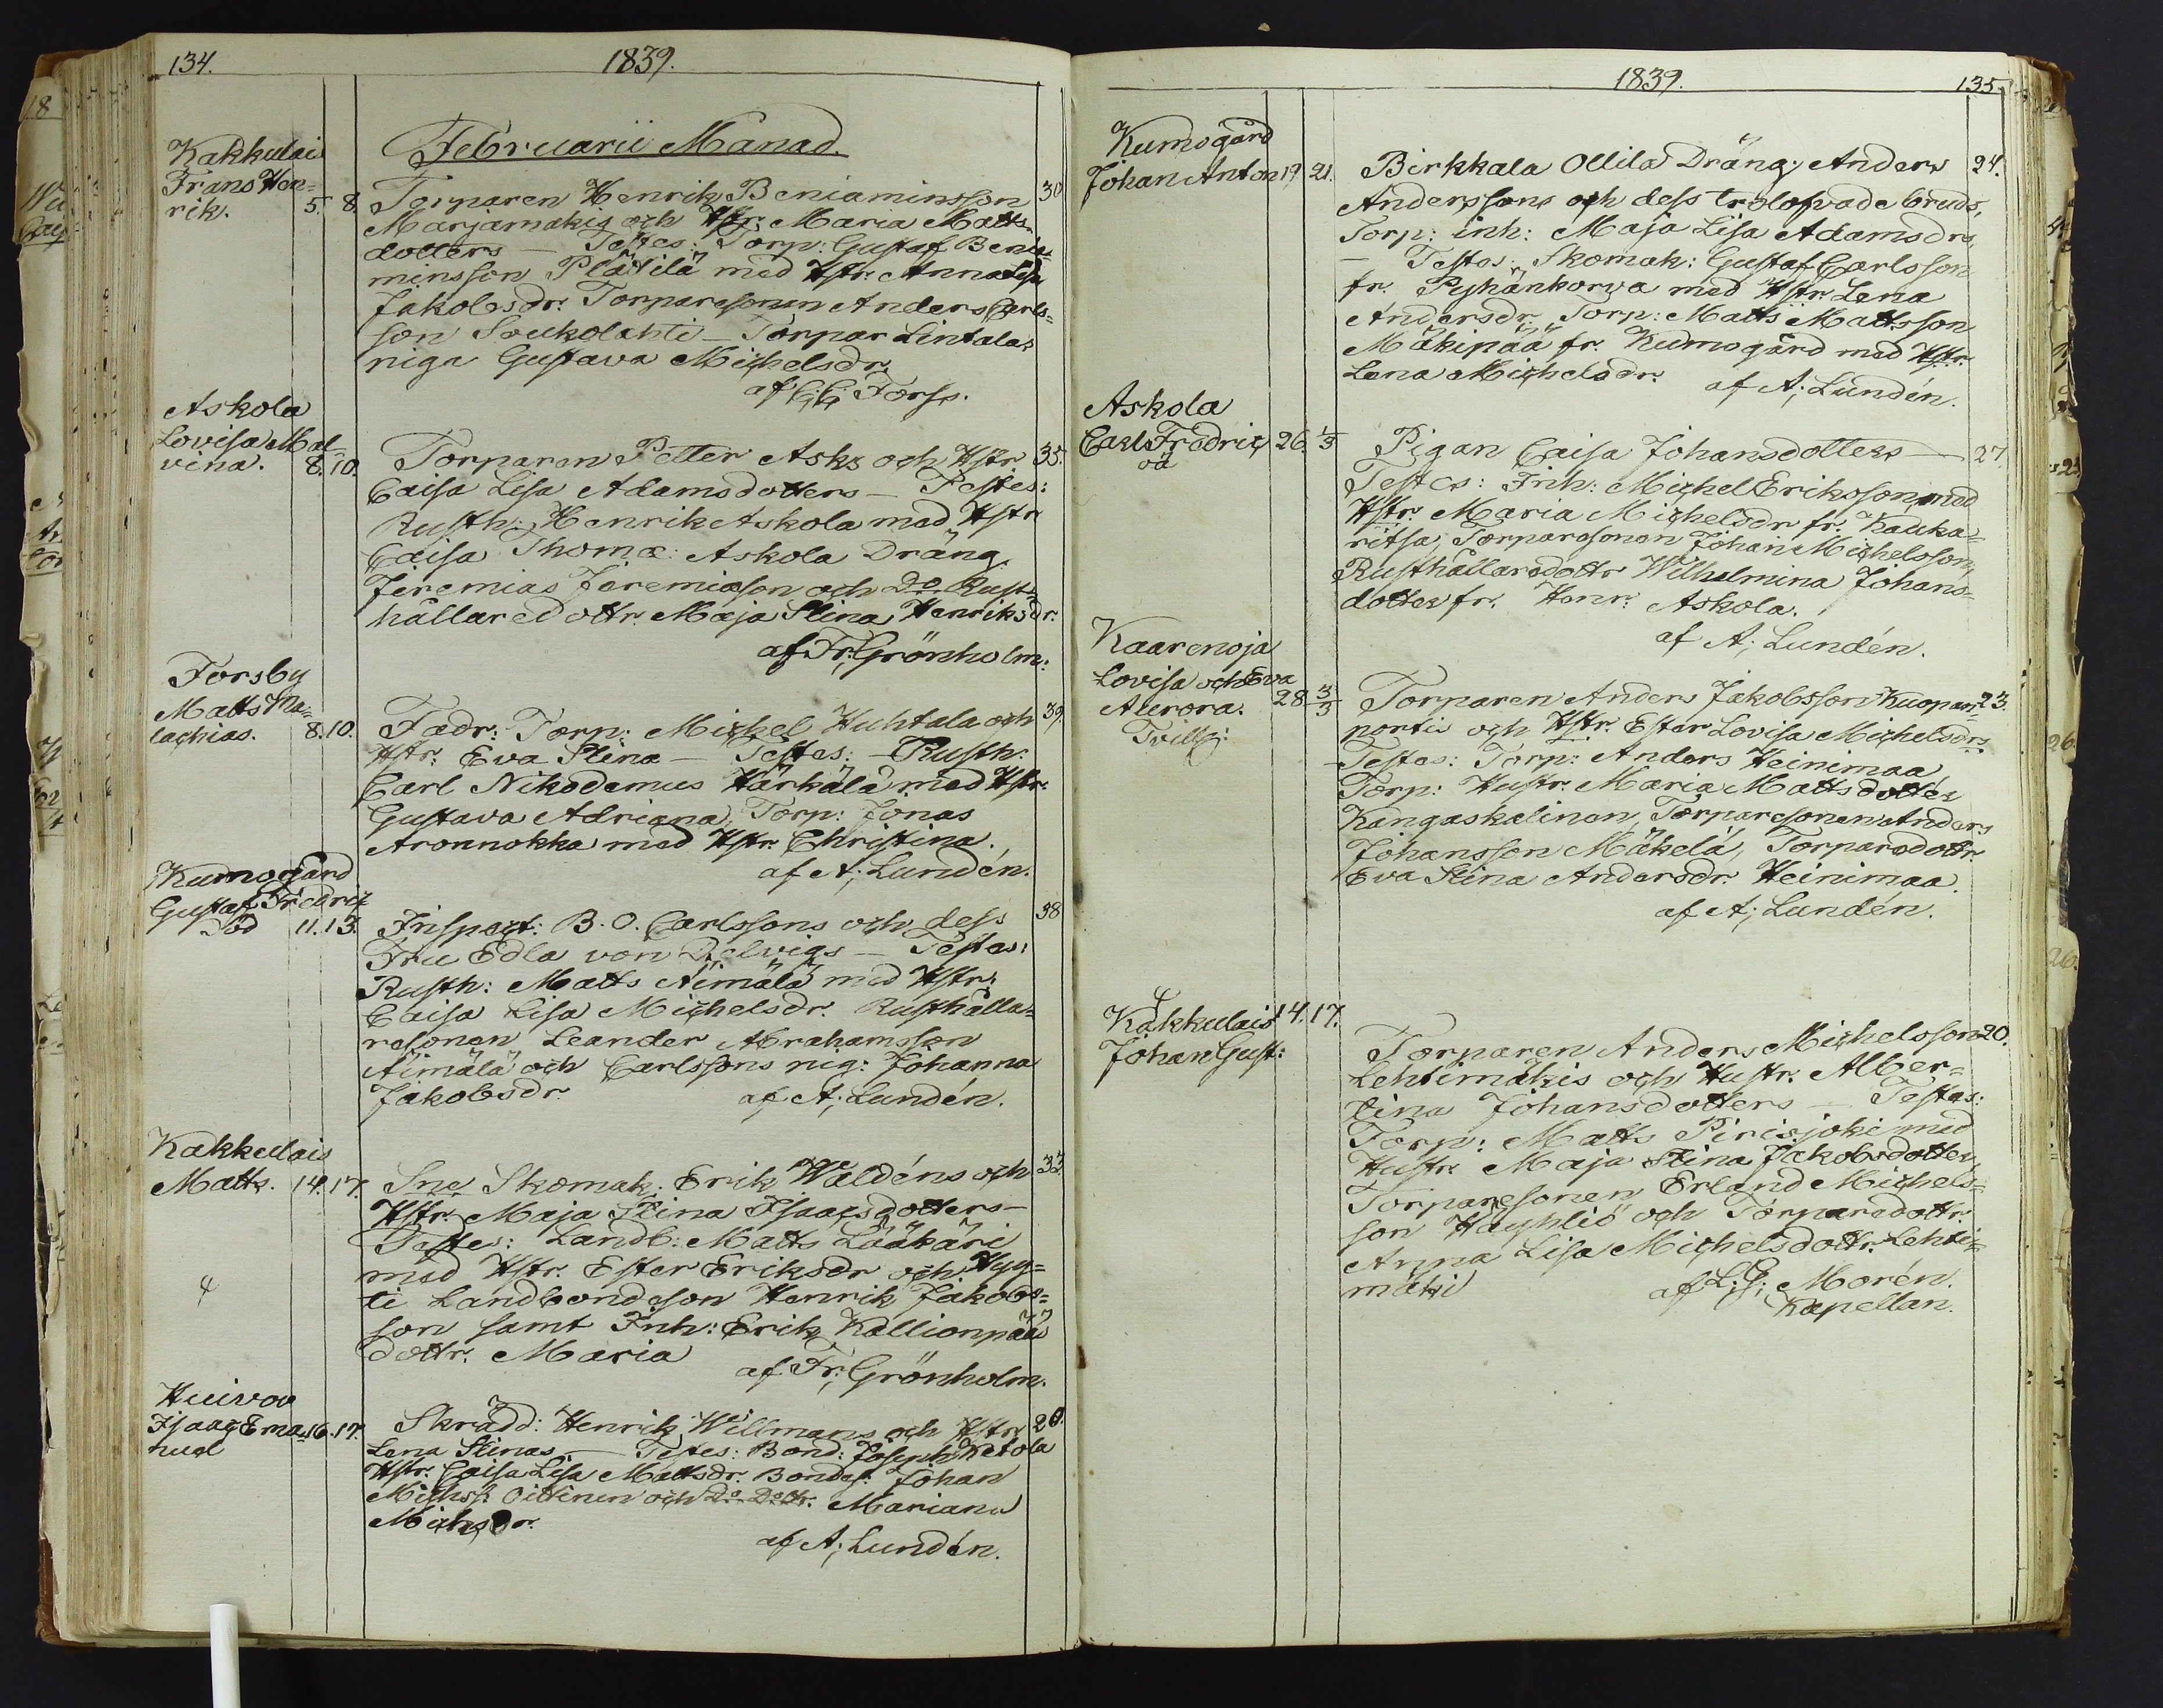 134.
1839.
Februarii Månad.
Kakkulais
Frans Hen=
rik.
5. 8.
Torparen Henrik Beniaminsson
30
Marjamäkis och Hstr. Maria Matts
dotters — Testes: Torp: Gustaf Benia=
minsson Plätilä med Hstr. Anna Lisa
Jakobsdr. Torparesonen Anders Carls=
son Soukolahti — Torpar Lintalas
piga Gustava Michelsdr.
af C. G. Forss.
Askola
Lovisa Mal=
vina.
8. 10.
Torparen Petter Asks och Hstr
35.
Caisa Lisa Adamsdotters — Testes:
Rusth: Henrik Askola med Hstr
Caisa Thomæ: Askola Dräng.
Jeremias Jeremiasson och Do Rust=
hållaredottr. Maja Stina Henriksdr.
af Fr: Grönholm:
Forsby
Matts Ma=
lachias.
8. 10.
Fadr: Torp: Michel Huhtala och
39.
Hstr. Eva Stina — Testes: Rusth:
Carl Nikodemus Härkälä med Hstr.
Gustava Adriana, Torp: Jonas
Aronnokka med Hstr. Christina.
af A; Lundén.
Kumogård
Gustaf Fredrik
Död
11. 13.
Inspect: B. O. Carlssons och dess
38
Fru Edla von Delvigs — Testes:
Rusth: Matts Äimälä med Hstr.
Caisa Lisa Michelsdr. Rusthålla=
resonen Leander Abrahamsson
Äimälä och Carlssons pig: Johanna
Jakobsdr.
af A; Lundén.
Kakkulais
Matts.
14. 17.
Sne Skomak. Erik Waldéns och
33.
Hstr. Maja Stina Isaacsdotters —
Testes: Landb: Matts Lääkäri
med Hstr. Ester Eriksdr och Hyy=
ti Landbondeson Henrik Jakobs=
son samt Inh: Erik Kallionpää
dottr. Maria
af Fr; Grönholm.
Huivov
Isaac Ema=
nuel
16. 17.
Skrädd: Henrik Willmans och Hstr
20.
Lena Stinas — Testes: Bond: Joseph Ketola
Hstr. Caisa Lisa Mattsdr. Bondes: Johan
Michss: Oittinen och Do Dottr. Mariana
Michsdr.
af A; Lundén.
1839.
135.
Kumogård
Johan Anton 19 21.
Birkkala Ollila Dräng: Anders
24.
Anderssons och dess trolofvade bruds,
Torp: inh: Maja Lisa Adamsdrs
— Testes: Skomak: Gustaf Carlsson
fr. Pyhänkorva med Hstr. Lena
Andersdr, Torp: Matts Mattsson
Mäkipää fr. Kumogård med Hstr.
Lena Michelsdr.
af A; Lundén.
Askola
Carl Fredric
oä
26. 1/3
Pigan Caisa Johansdotters —
27.
Testes: Inh: Michel Eriksson med
Hstr. Maria Michelsdr fr. Kauka=
ritsa, Torparesonen Johan Michelsson,
Rusthållaredottr Wilhelmina Johans=
dotter fr. Henr: Askola.
af A; Lundén.
Kaarenoja
Lovisa och Eva
Aurora.
Tvilling:
28. 3/3
Torparen Anders Jakobsson Kuopan=
23.
portis och Hstr. Ester Lovisa Michelsdrs
Testes: Torp: Anders Heinimaa
Torp: Hustr. Maria Mattsdotter
Kangaskalinen, Torparesonen Anders
Johansson Mäkelä, Torparedottr
Eva Stina Andersdr. Heinimaa.
af A; Lundén.
Kakkulais
Johan Gust:
14. 17.
Torparen Anders Michelsson
20.
Lehtimäkis och Hustr. Alber=
tina Johansdotters — Testes:
Torp: Matts Pirisjoki med
Hustr. Maja Stina Jakobsdotter,
Torparesonen Erland Michels=
son Häyhtiö och Torparedottr
Anna Lisa Michelsdottr. Lehti=
mäki
af L: G: Morén.
Kapellan.